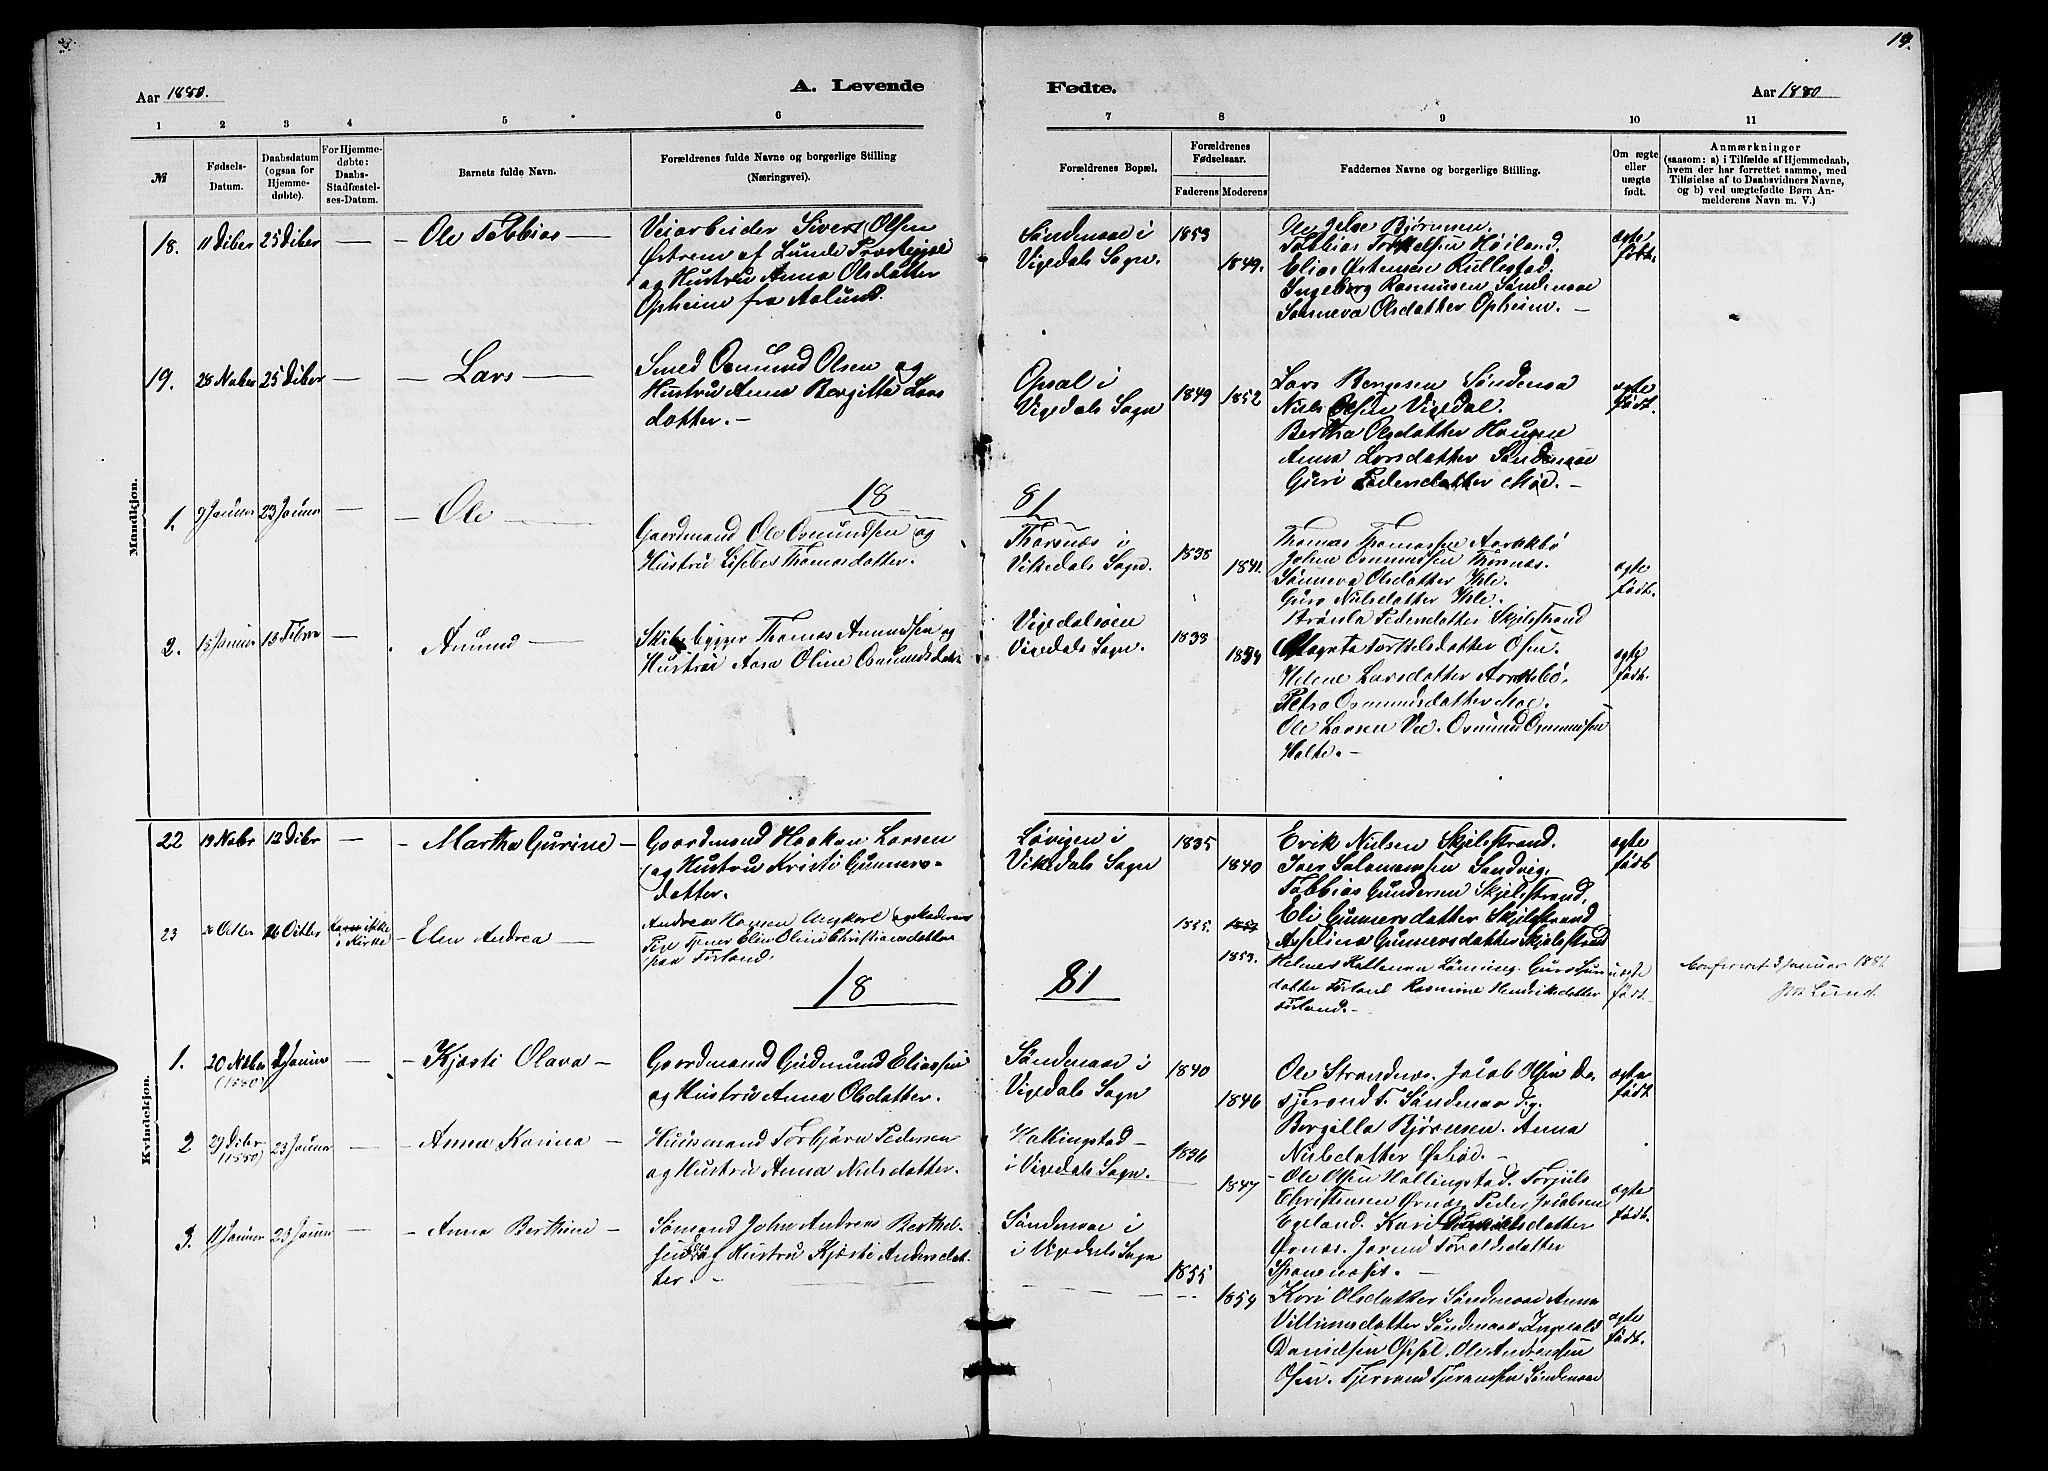 19.
Aar 1880.
A. Levende
Fødte.
Aar 1880
1 2 3 4 5 6
7 8 9 10 11
№
Fødsels-
Datum.
Daabsdatum
(ogsaa for
Hjemme-
døbte).
For Hjemme-
døbte:
Daabs-
Stadfæstel-
ses-Datum.
Barnets fulde Navn.
Forældrenes fulde Navne og borgerlige Stilling
(Næringsvei).
Forældrenes Bopæl.
Forældrenes
Fødselsaar.
Faderens Moderens
Faddernes Navne og borgerlige Stilling.
Om ægte
eller
uægte
født.
Anmærkninger
(saasom: a) i Tilfælde af Hjemmedaab,
hvem der har forrettet samme, med
Tilføielse af to Daabsvidners Navne,
og b) ved uægtefødte Børn An-
melderens Navn m. V.)
Mandkjøn.
18. 11 Dcber 25 Dcber — — Ole Tobbias —
Veiarbeider Sivert Olsen
Østrem af Lunde
og Hustru Anna Olsdatter
Opheim fra Aalund.
Søndenaae i
Vigedals Sogn.
1853
1849.
Ole Bjørnsen.
Tobbias Torkelsen Høiland.
Elias Østensen Rullestad.
Ingeborg Rasmusen Søndenaae
Sønneva Olsdatter Opheim. —
ægte
født.
19. 28 Nober 25 Dcber — — Lars —
Smed Osmund Olsen og
Hustru Anna Bergitta Lars
datter. —
Opsal i
Vigedals Sogn
1849 1852
Lars Bergesen Søndenaa
Niels Olsen Vigedal.
Bertha Olsdatter Hougen
Anna Larsdatter Søndenaae
Guri Pedersdatter Moe. —
ægte
født.
18 81
1. 9 Januar 23 Januar — — Ole —
Gaardmand Ole Osmundsen og
Hustru Lisebet Thomasdatter.
Thorsnæs i
Vikedals Sogn.
1838
1841.
Thomas Thomassen Aarekbø
Johan Osmundsen Thorsnæs.
Sønneva Olsdatter Hole.
Guro Nielsdatter Hole.
Brønla Pedersdatter Skjelstrand
ægte
født.
2. 15 Januar 13 Febr — Amund —
Skibsbygger Thomas Amundsen og
Hustru Aasa Oline Osmundsdatr
Vigedalsøen
Vigedals Sogn.
1838
1834
Magreta Torkelsdatter Osen.
Helene Larsdatter Aarekbø.
Petra Osmundsdatter Moe.
Ole Larsen Vee. Osmund Osmundsen
Holte. —
ægte
født.
Kvindekjøn.
22 19 Nobr 12 Dcbr — — Martha Gurine —
Gaardmand Haakon Larsen
og Hustru Kristi Gunners-
datter.
Løvigen i
Vikedals Sogn
1835
1840
Erik Nielsen Skjelstrand.
Iver Salamonsen Sandvig.
Tobbias Gundersen Skjelstrand.
Eli Gunnersdatter Skjelstrand
Asseline Gunnersdatter Skjelstrand
ægte
født
23 26 Octbr — Elen Andrea —
Andreas Hansen Ungkarl og
Pige Elen Oline Christiansdatter
paa Førland.
1855.
1853.
datter Førland Rasmine Henriksdatter
Førland. —
født
Confereret 3 Januar 1881.
Lund.
18 81
1. 20 Nober
(1880) 2 Januar — — Kjøsti Olava —
Gaardmand Gudmund Eliassen
og Hustru Anna Olsdatter.
Søndenaae i
Vigedals Sogn
1840
1846
Ole Strandnes. Jacob Olsen Do.
Tjerand T. Søndenaa
Bergilla Bjørnsen. Anna
Nielsdatter Øsbød. —
ægte
født.
2 29 Dcbr
(1880) 23 Januar — Anna Karina —
Huusmand Torbjørn Pedersen
og Hustru Anna Nielsdatter.
Hallingstad —
i Vigedals Sogn.
1836
1847
Ole Olsen Hallingstad. Torjuls
Christensen Ørnes Peder Jacobsen
Egeland. Kari
Ørnæs. Jorend Toraldsdatter
Spanenæset. —
ægte
født.
3. 11 Januar 23 Januar — — Anna Berthine —
Sømand John Andreas Berthel-
sen og Hustru Kjøsti Andersdat-
ter. —
Søndenaae i
i Vigedals Sogn
1855
1854
Kari Olsdatter Søndenaae Anna
Villumsdatter Søndenaae. Ingevald
Danielsen Opsal. Ole Andreassen
Osen. Tjerand Tjerandsen Søndenaae
ægte
født.